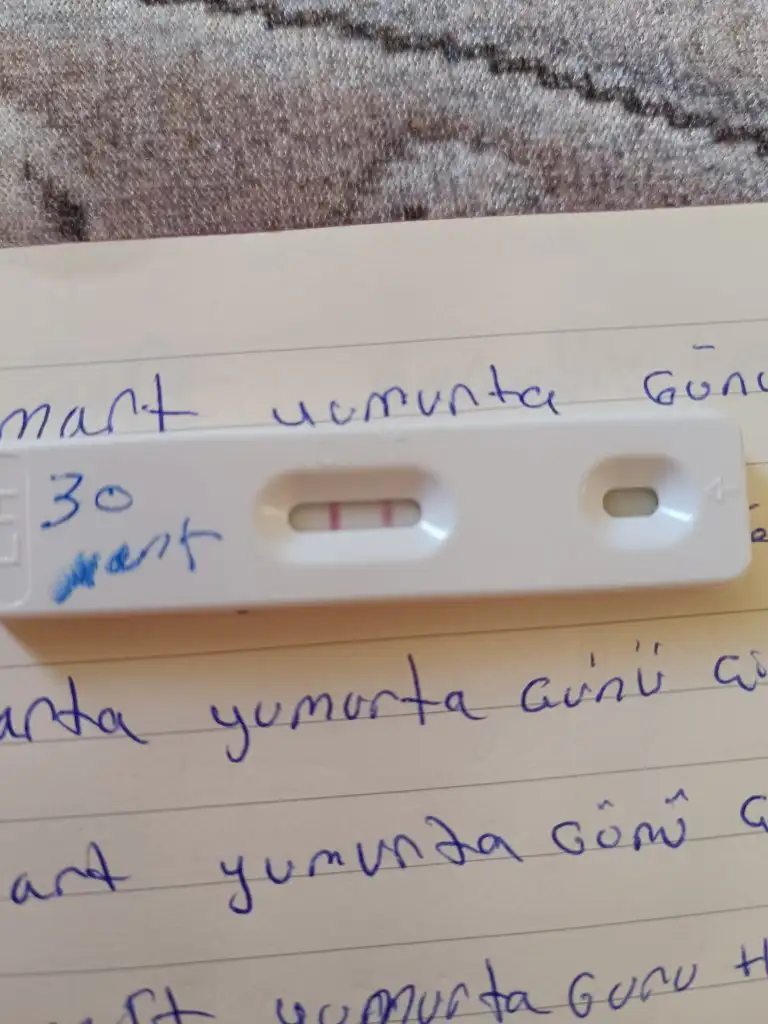 mart yumurta Günü
30
mart
yumurta Günü
art yumurta Günü
yumurta Günü